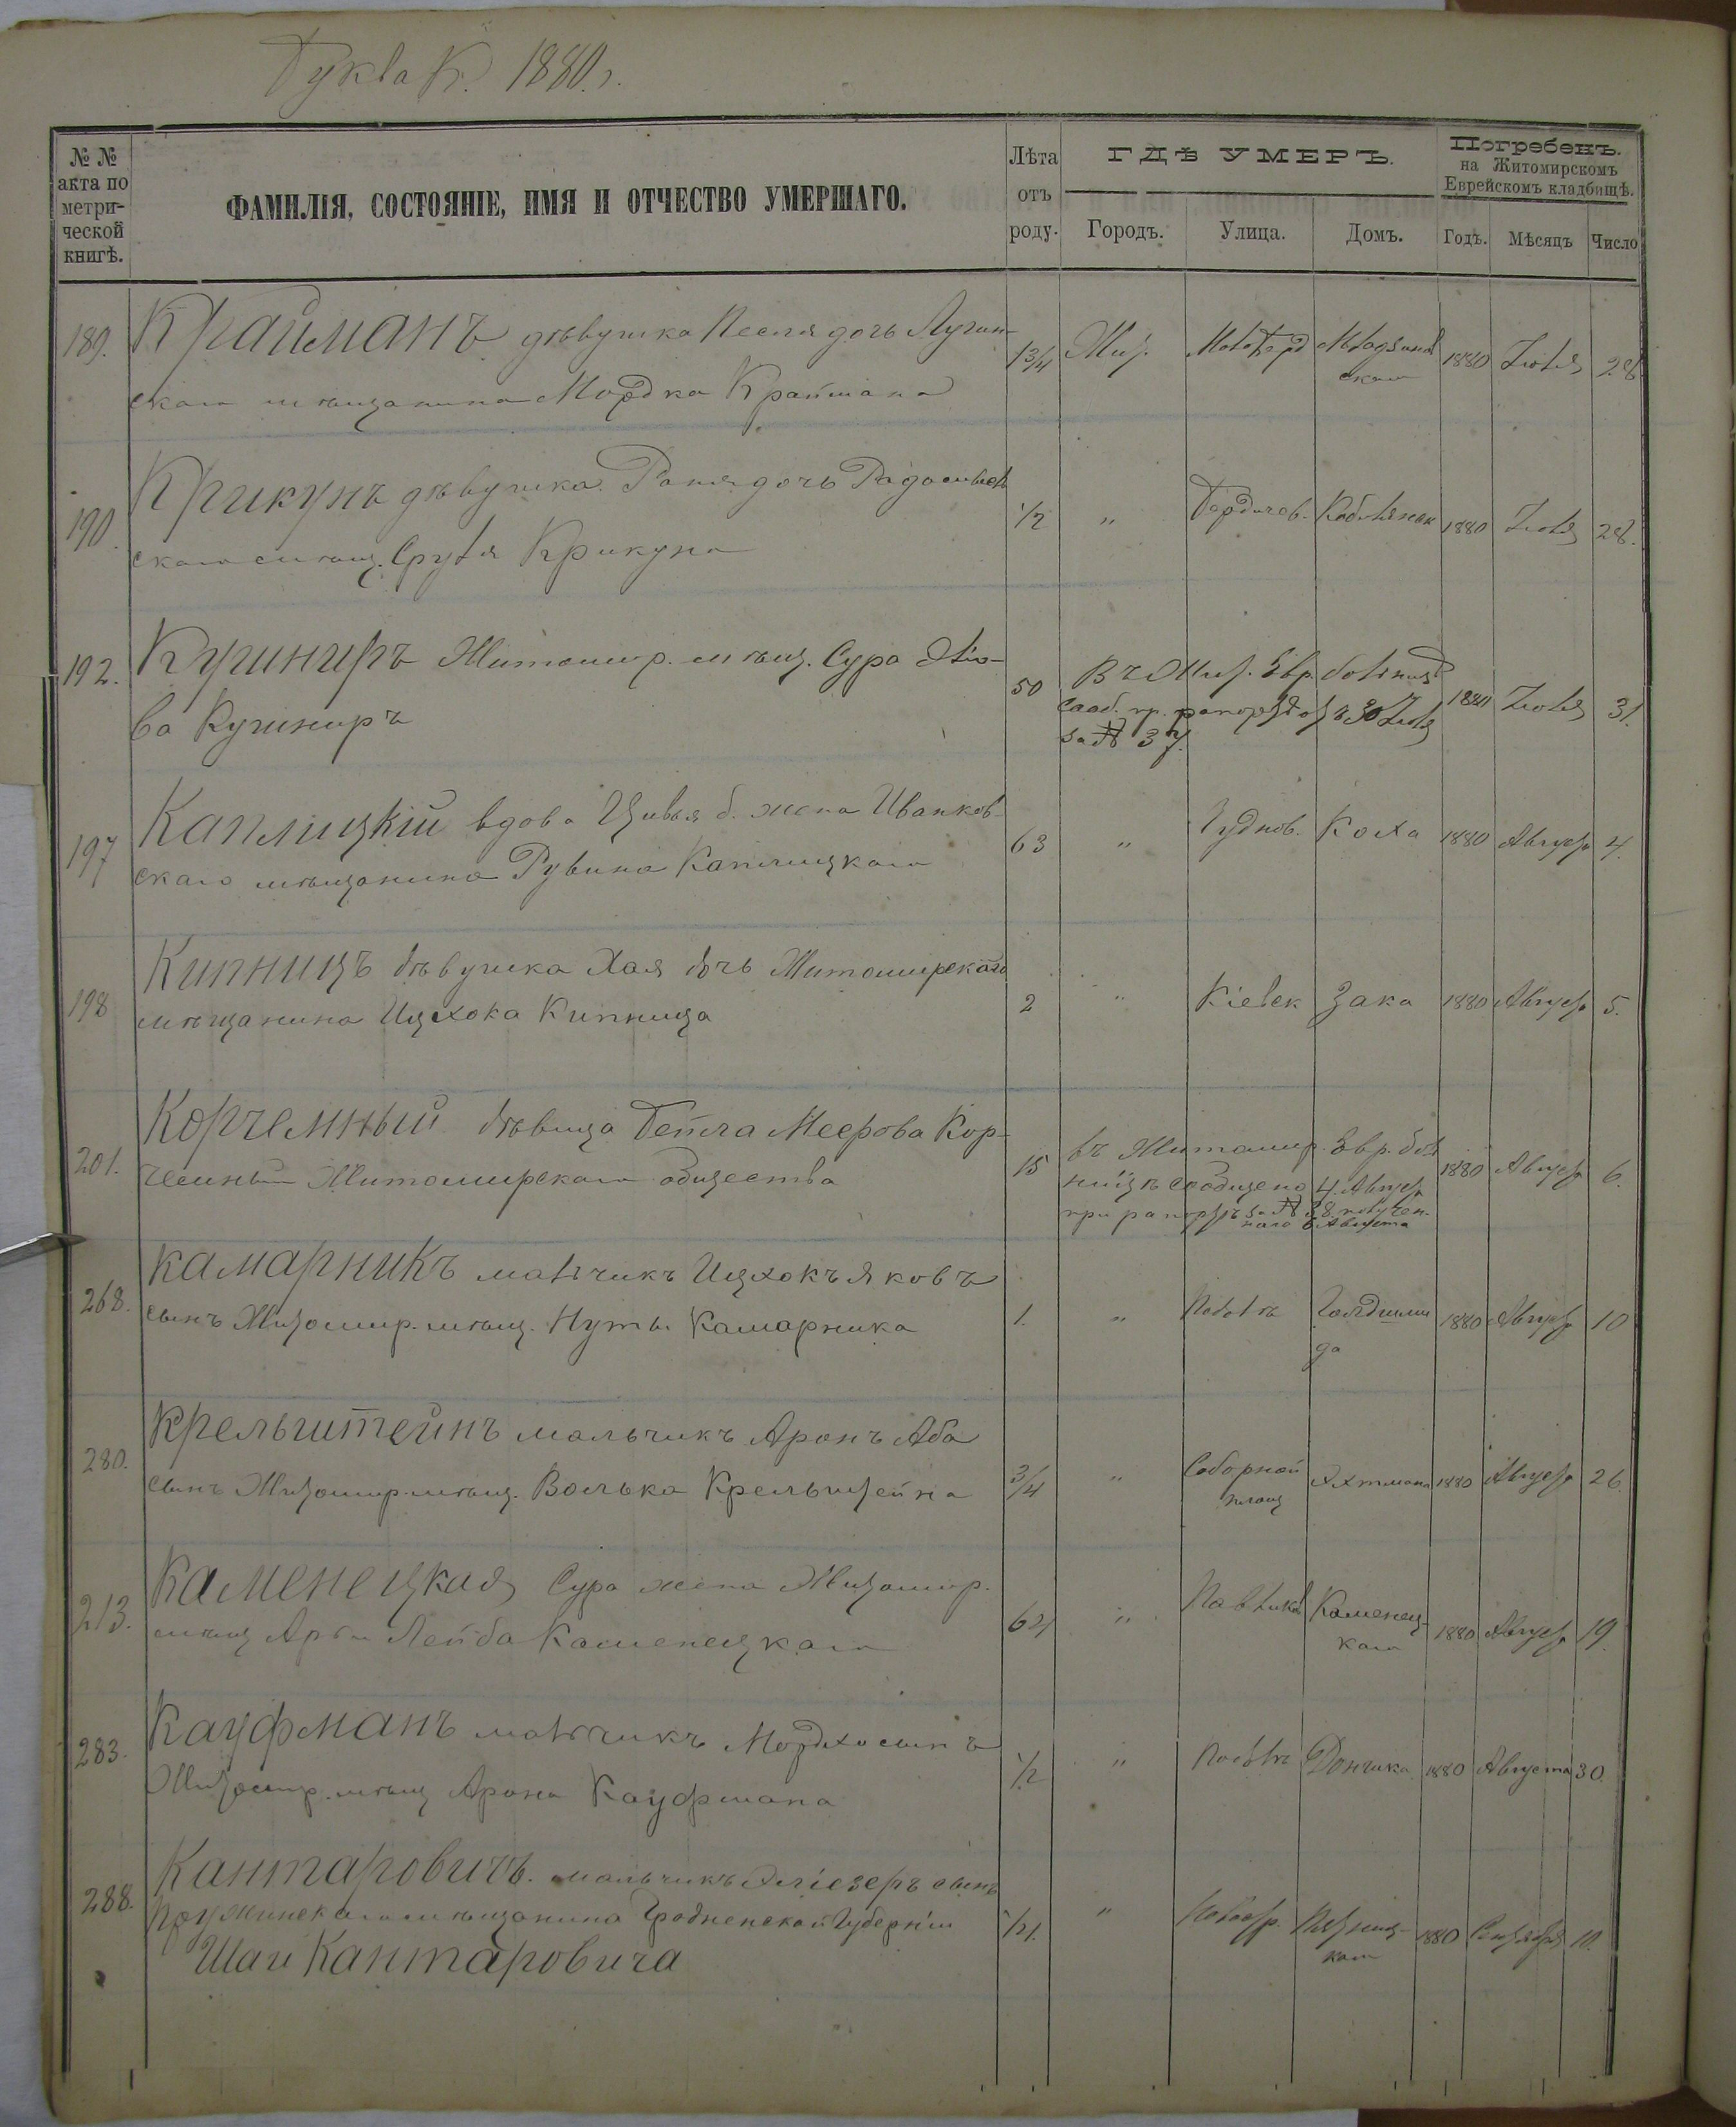 Буква К. 1880 г.
№ № акта по метри-ческой книгѣ.
ФАМИЛІЯ, СОСТОЯНІЕ, ИМЯ И ОТЧЕСТВО УМЕРШАГО.
Лѣта отъ роду.
ГДѢ УМЕРЪ.
Городъ. Улица. Домъ.
Погребенъ.
на Житомирскомъ
Еврейскомъ кладбищѣ.
Годъ. Мѣсяцъ Число
189. Крайманъ дѣвушка Песля дочь Лугин-
скаго мѣщанина Мордка Краймана
1 3/4 Жит. 1880 Іюля 28
190. Крикунъ дѣвушка дочь
скаго мѣщ. Сруля Крикуна
1/2 " Бердичев. 1880 Іюля 28.
192. Кушниръ Житомир. мѣщ. Сура
ва Кушниръ
50 Въ Жит. Евр. больниц
Сооб. пр. рапортѣ отъ 30 Іюля
за № 37.
1880 Іюля 31.
197 Каплицкій вдова Цивья б. жена Иванков-
скаго мѣщанина Рувина Каплицкаго
63 " Чуднов. 1880 Август 4.
198 Кипницъ дѣвушка Хая дочь Житомирскаго
мѣщанина Ицхока Кипница
2 " Кіевск Зака 1880 Август 5.
201. Корчемный дѣвица Бейла Меерова Кор-
чемный Житомирскаго общества
15 въ Житомир. Евр. бол
ницѣ сообщено 4. Август
при рапортѣ за № 38. получен-
наго 6 Августа
1880 Август 6.
268. Камарникъ мальчикъ Ицхокъ Яковъ
сынъ Житомир. мѣщ. Нуты Камарника
1. " Подолъ Гольдшми
да
1880 Август 10
280. Крельштейнъ мальчикъ Аронъ Аба
сынъ Житомир. мѣщ. Волька Крельштейна
3/4 " Соборной
площ
1880 Август 26.
213. Каменецкая Сура жена Житомир.
мѣщ Арьи Лейба Каменецкаго
64 " Каменец-
каго
1880 Август 19.
283. Кауфманъ мальчикъ Мордхо сынъ
Житомир. мѣщ Арона Кауфмана
1/2 " Дончика 1880 Августа 30.
288. Кантаровичъ. мальчикъ Эліезеръ сынъ
Пружинскаго мѣщанина Гродненской Губерніи
Шаи Кантаровича
" 1880 Сентября 10.